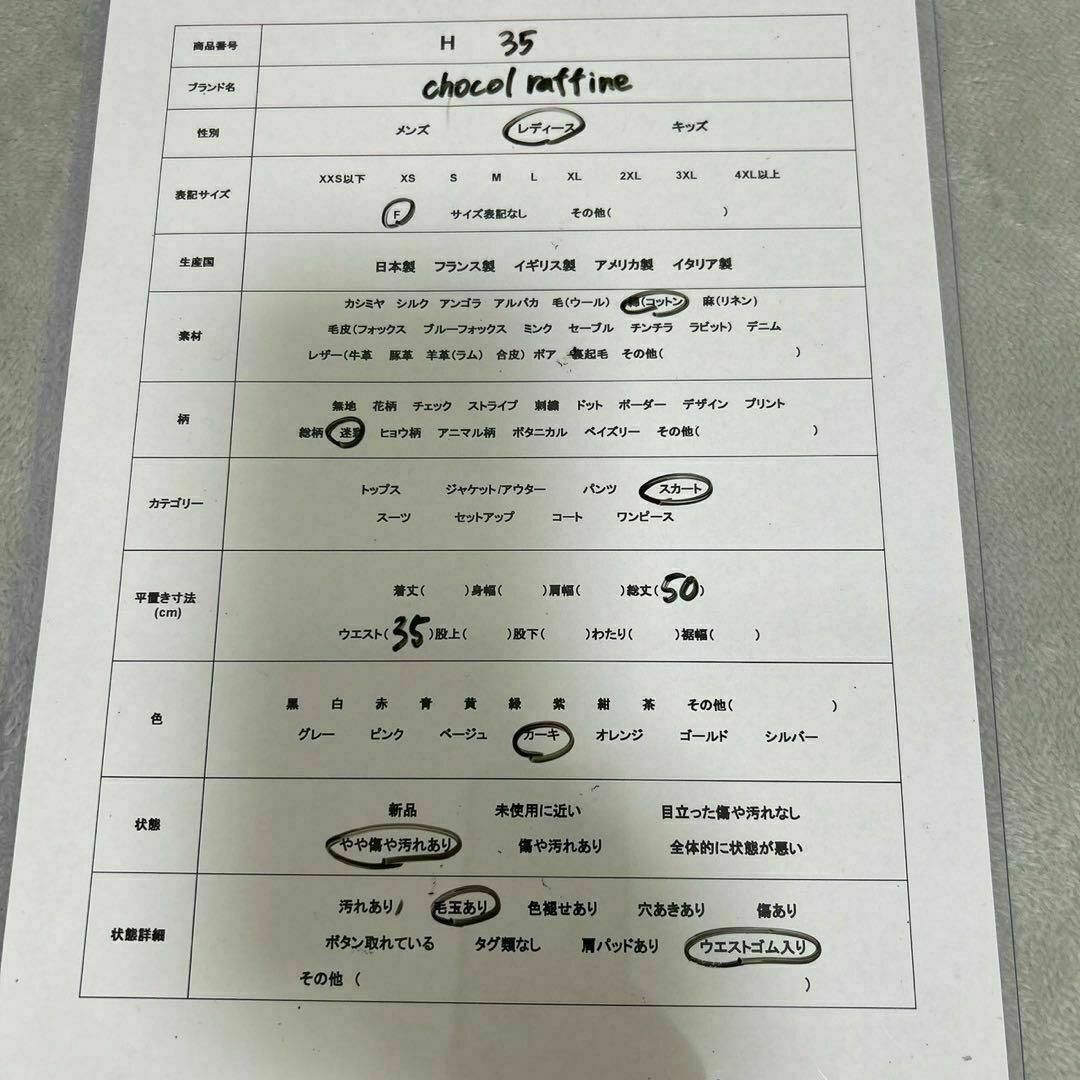 商品番号 H 35
ブランド名 chocol raffine
性別 メンズ レディース キッズ
XXS以下 XS S M L XL 2XL 3XL 4XL以上
表記サイズ
F サイズ表記なし その他( )
生産国 日本製 フランス製 イギリス製 アメリカ製 イタリア製
カシミヤ シルク アンゴラ アルパカ 毛(ウール) 綿(コットン) 麻(リネン)
素材 毛皮(フォックス ブルーフォックス ミンク セーブル チンチラ ラビット) デニム
レザー(牛革 豚革 羊革(ラム) 合皮) ボア 裏起毛 その他( )
無地 花柄 チェック ストライプ 刺繍 ドット ボーダー デザイン プリント
柄
総柄 迷彩 ヒョウ柄 アニマル柄 ボタニカル ペイズリー その他( )
トップス ジャケット/アウター パンツ スカート
カテゴリー
スーツ セットアップ コート ワンピース
着丈( )身幅( )肩幅( )総丈(50)
平置き寸法
(cm)
ウエスト(35)股上( )股下( )わたり( )裾幅( )
黒 白 赤 青 黄 緑 紫 紺 茶 その他( )
色
グレー ピンク ベージュ カーキ オレンジ ゴールド シルバー
新品 未使用に近い 目立った傷や汚れなし
状態
やや傷や汚れあり 傷や汚れあり 全体的に状態が悪い
汚れあり 毛玉あり 色褪せあり 穴あきあり 傷あり
状態詳細 ボタン取れている タグ類なし 肩パッドあり ウエストゴム入り
その他 ( )